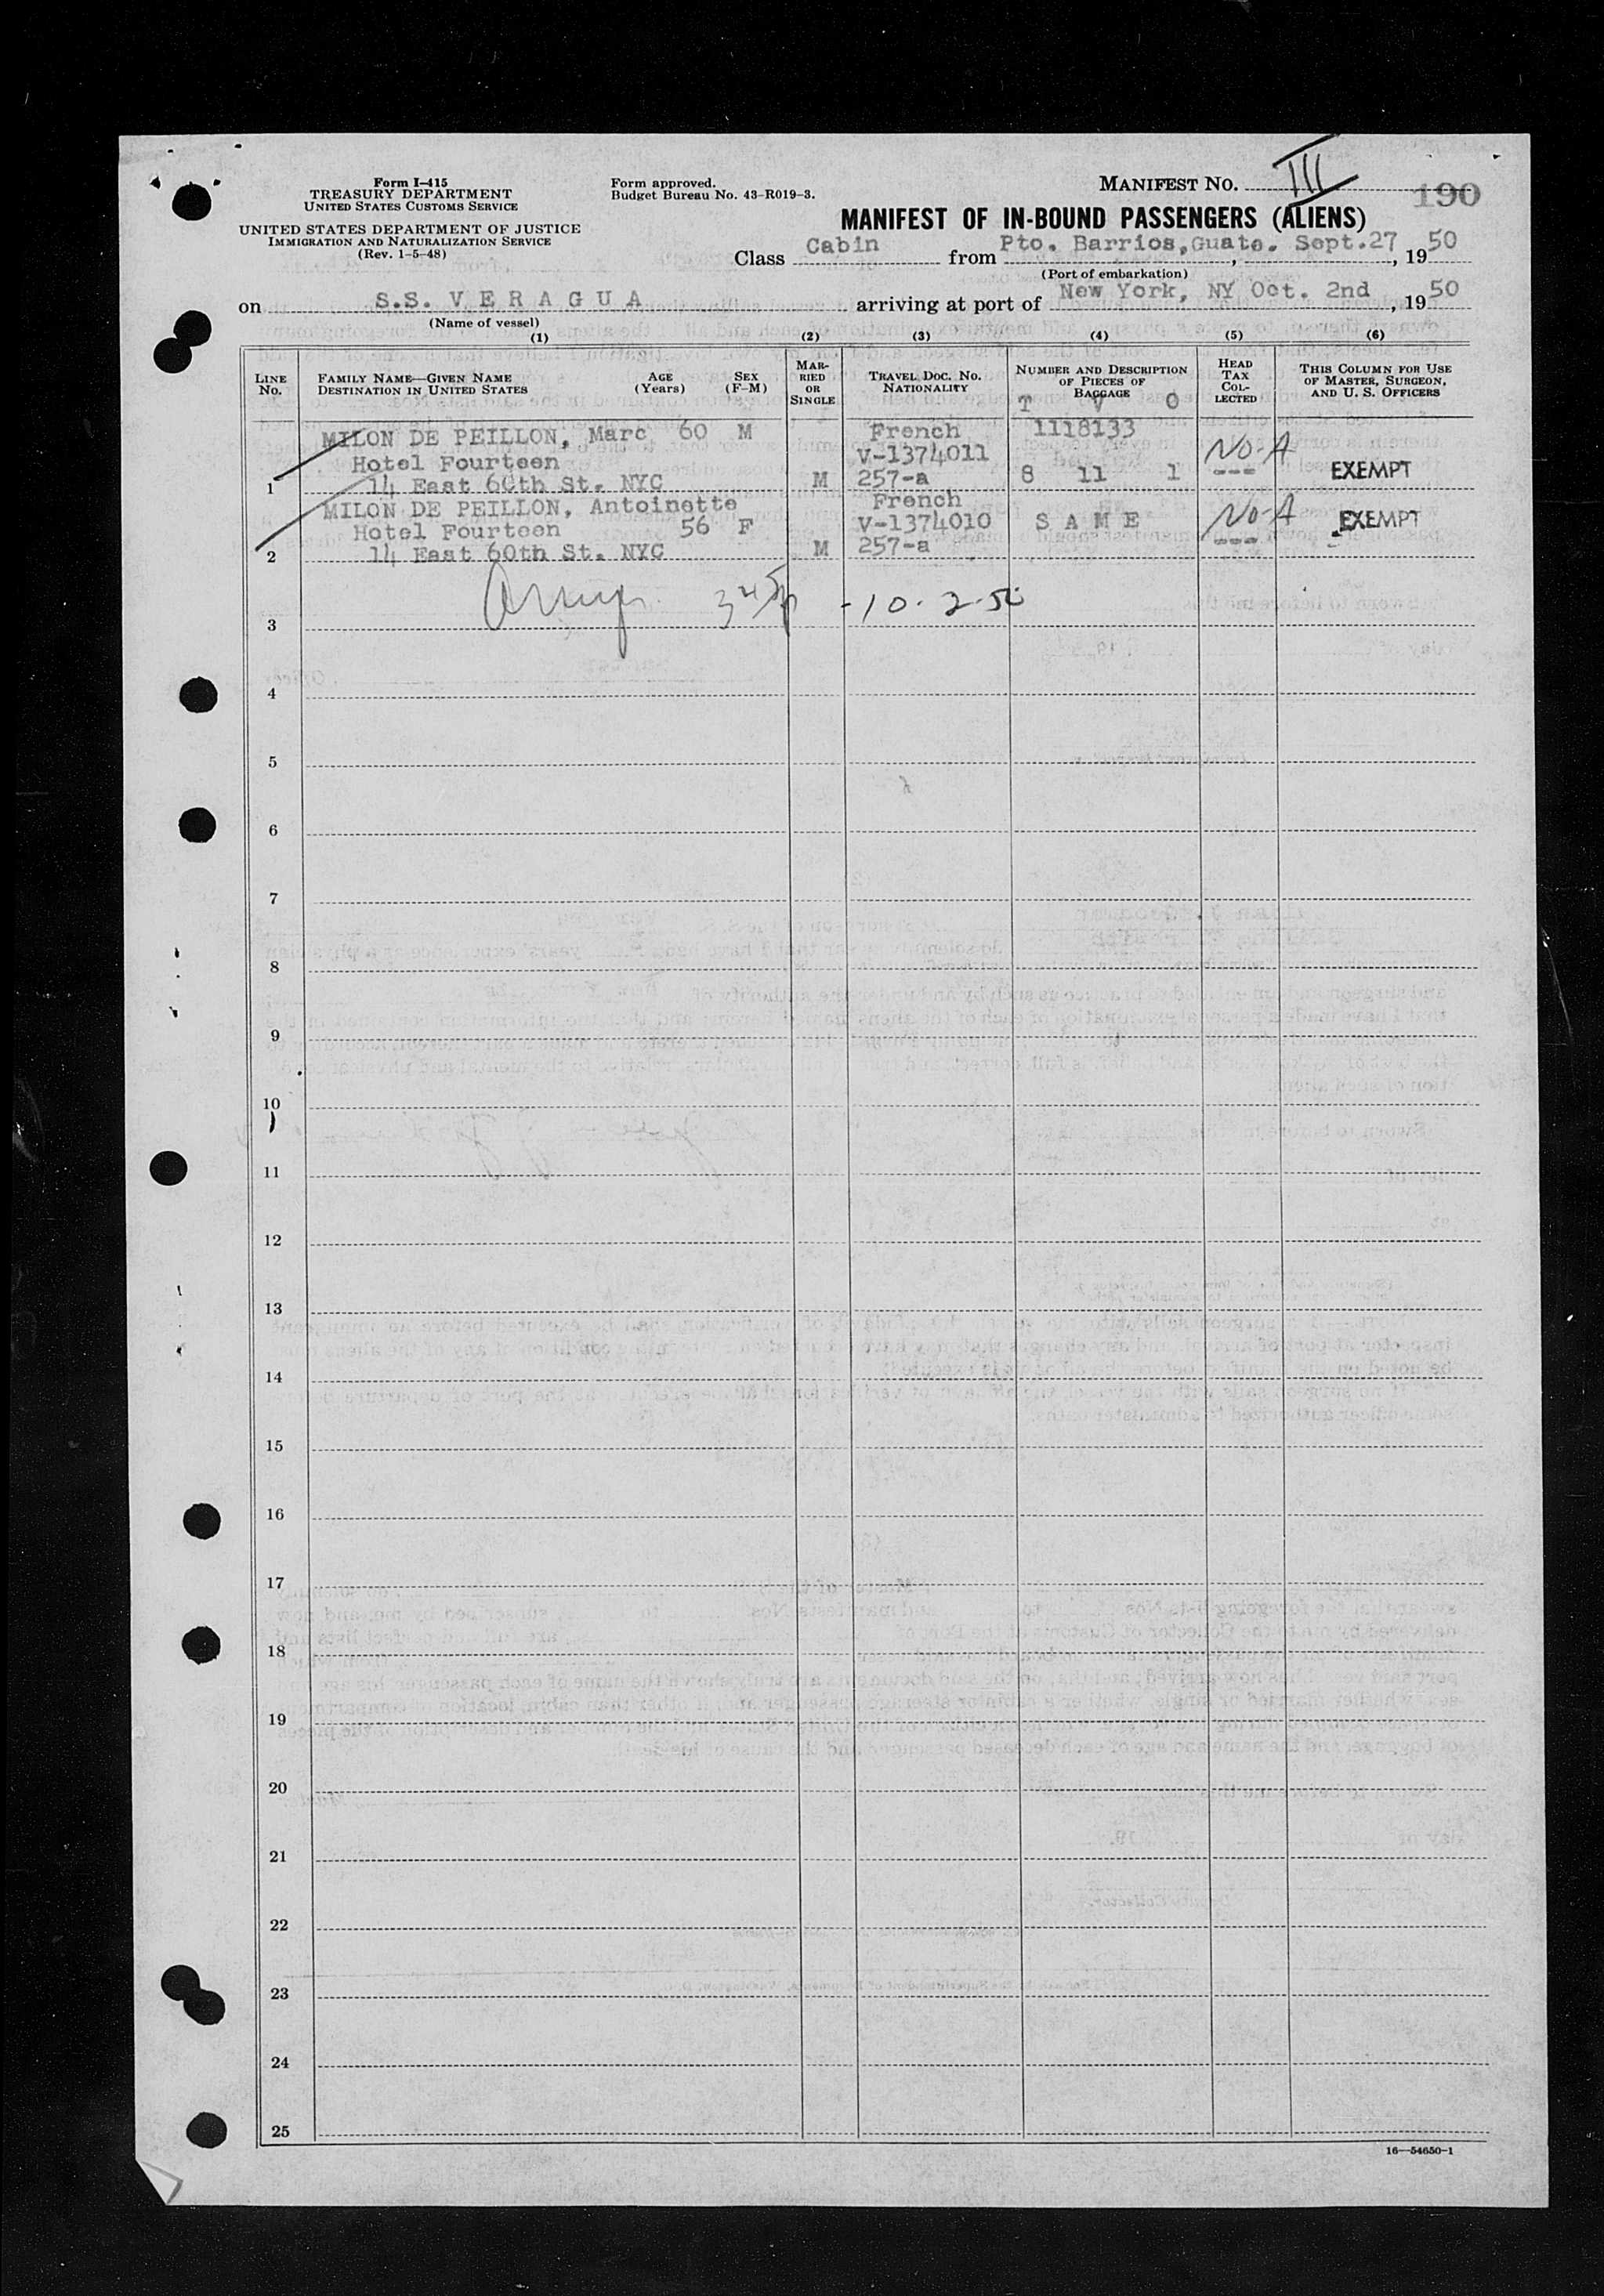 Form I-415
TREASURY DEPARTMENT
UNITED STATES CUSTOMS SERVICE
UNITED STATES DEPARTMENT OF JUSTICE
IMMIGRATION AND NATURALIZATION SERVICE
(Rev. 1-5-48)
Form approved.
Budget Bureau No. 43-R019-3.
MANIFEST NO. III
190
MANIFEST OF IN-BOUND PASSENGERS (ALIENS)
Class Cabin from Pto. Barrios, Guate. Sept.27, 1950
(Port of embarkation)
on S.S. VERAGUA arriving at port of New York, NY Oct. 2nd, 1950
(Name of vessel)
(1) (2) (3) (4) (5) (6)
LINE No.
FAMILY NAME—GIVEN NAME
DESTINATION IN UNITED STATES
AGE (Years)
SEX (F-M)
MARRIED OR SINGLE
TRAVEL DOC. NO. NATIONALITY
NUMBER AND DESCRIPTION OF PIECES OF BAGGAGE
T V O
HEAD TAX COLLECTED
THIS COLUMN FOR USE OF MASTER, SURGEON, AND U. S. OFFICERS
MILON DE PEILLON, Marc 60 M French 1118133
Hotel Fourteen V-1374011 No-A
1 14 East 60th St. NYC M 257-a 8 11 1 --- EXEMPT
MILON DE PEILLON, Antoinette French
Hotel Fourteen 56 F V-1374010 S A M E No-A EXEMPT
2 14 East 60th St. NYC M 257-a ---
3 - 10-2-50
4
5
6
7
8
9
10
11
12
13
14
15
16
17
18
19
20
21
22
23
24
25
16—54650-1